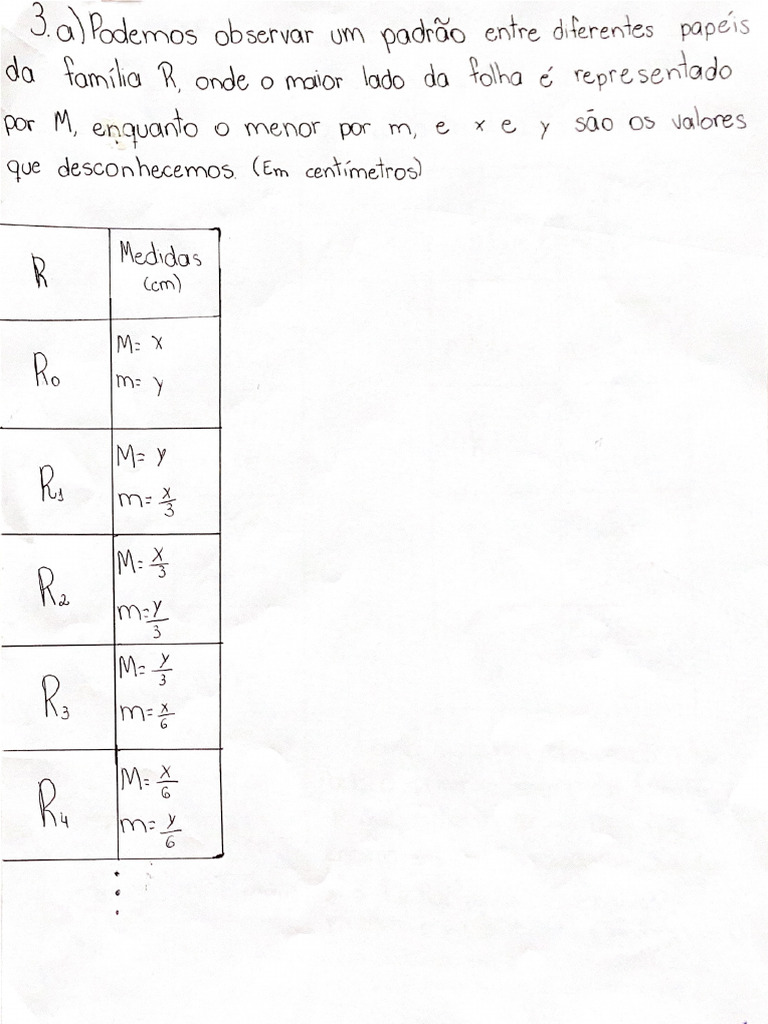 3. a) Podemos observar um padrão entre diferentes papéis
da família R, onde o maior lado da folha é representado
por M, enquanto o menor por m, e x e y são os valores
que desconhecemos. (Em centímetros)
R Medidas (cm)
R₀ M= x
m= y
R₁ M= y
m= x/3
R₂ M= x/3
m= y/3
R₃ M= y/3
m= x/6
R₄ M= x/6
m= y/6